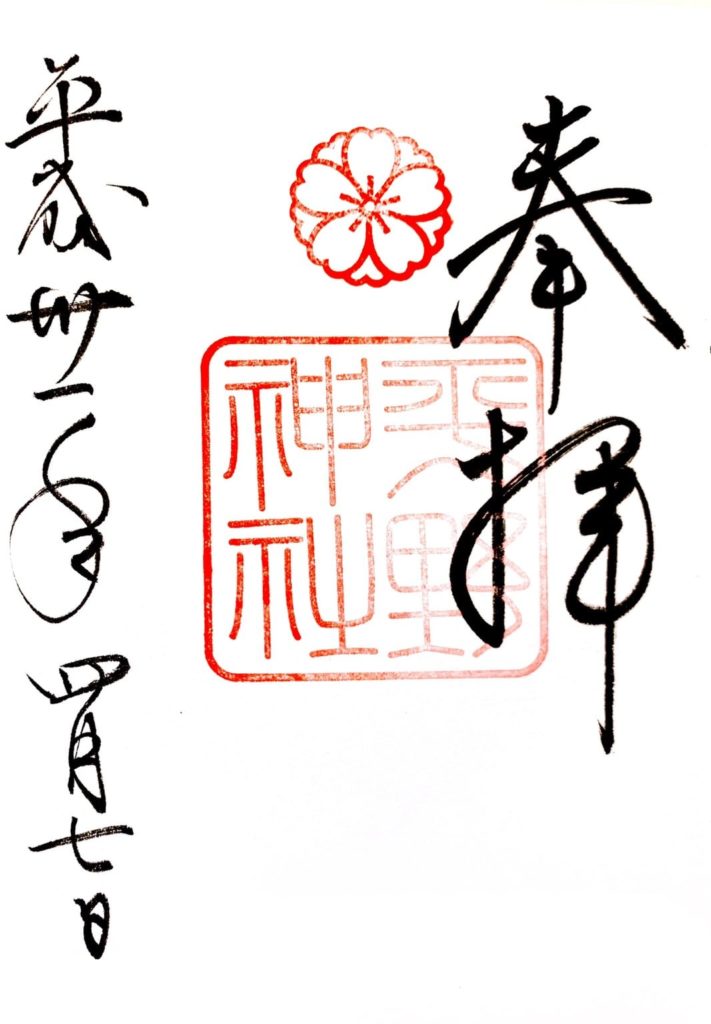 奉拝
平野神社
平成卅一年四月七日